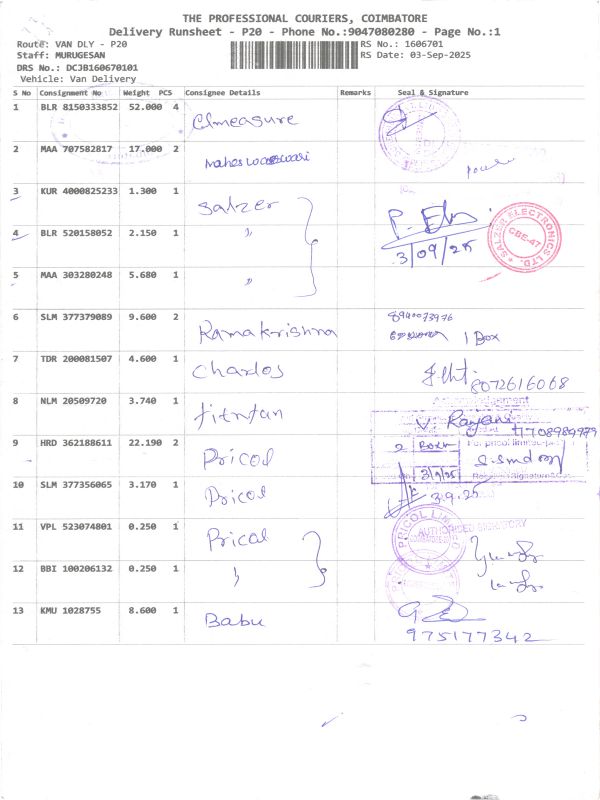 THE PROFESSIONAL COURIERS, COIMBATORE
Delivery Runsheet - P20 - Phone No.:9047080280 - Page No.:1
Route: VAN DLY - P20
RS No.: 1606701
Staff: MURUGESAN
RS Date: 03-Sep-2025
DRS No.: DCJB160670101
Vehicle: Van Delivery
S No Consignment No Weight PCS Consignee Details Remarks Seal & Signature
1 BLR 8150333852 52.000 4 Elmeasure
2 MAA 707582817 17.000 2
3 KUR 4000825233 1.300 1 Salzer
P.
4 BLR 520158052 2.150 1 "
3/09/25
SALZER ELECTRONICS LTD.
CBE-47
5 MAA 303280248 5.680 1 "
6 SLM 377379089 9.600 2 Ramakrishna
8940073976
1 Box
7 TDR 200081507 4.600 1 Charlos
8072616068
8 NLM 20509720 3.740 1
Acknowledgment
V. Rayani
7708989979
9 HRD 362188611 22.190 2 Pricol
2 Box
3/9/25
10 SLM 377356065 3.170 1 Pricol
3.9.25
11 VPL 523074801 0.250 1 Pricol
PRICOL LIMITED
AUTHORISED SIGNATORY
12 BBI 100206132 0.250 1 "
13 KMU 1028755 8.600 1 Babu
975177342